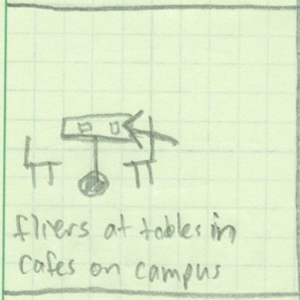 fliers at tables in
cafes on campus